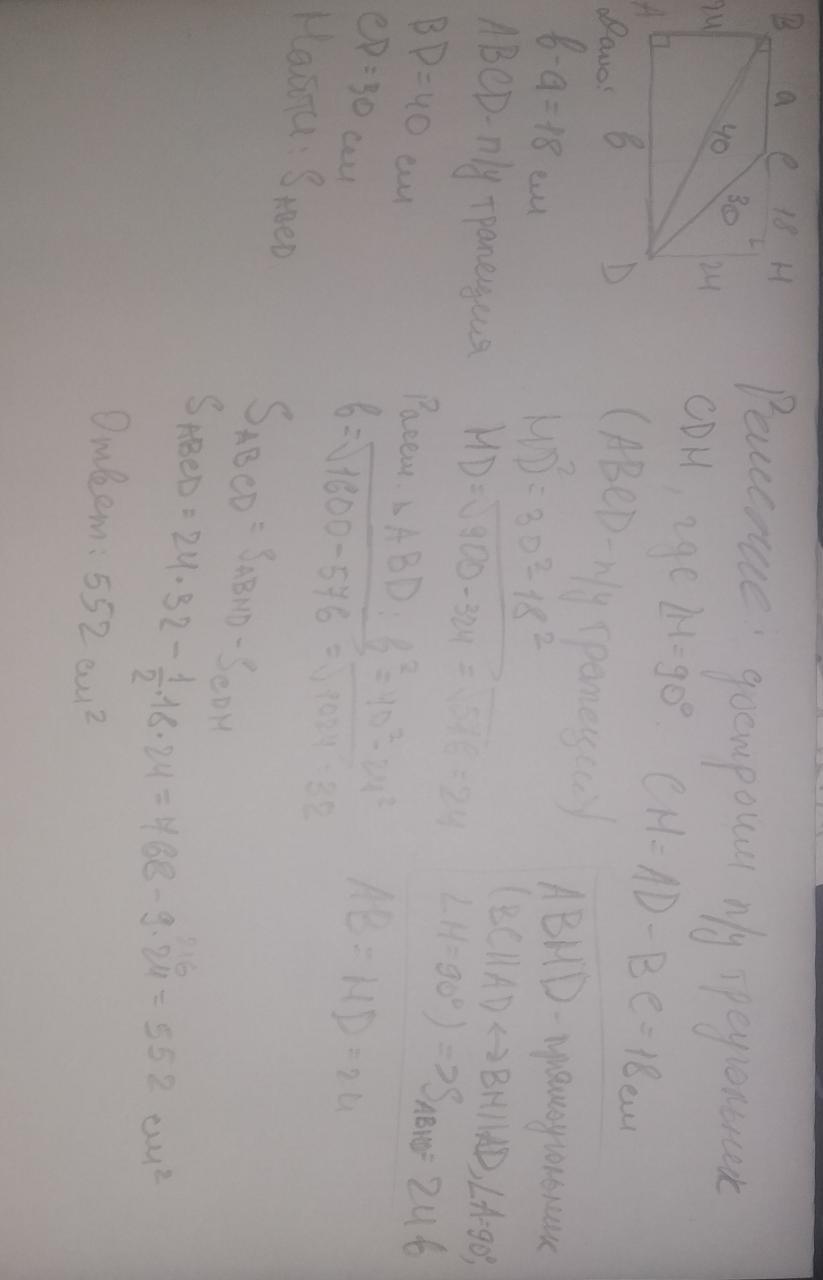 B a C 18 H
24 40 30 24
A b D
Дано:
b-a=18 см
ABCD-п/у трапеция
BD=40 см
CD=30 см
Найти: S ABCD
Решение: достроим п/у треугольник
CDH, где ∠H=90°. CH=AD-BC=18см
(ABCD-п/у трапеция)
HD²=30²-18²
HD=√900-324=√576=24
Рассм. ⊿ABD: b²=40²-24²
b=√1600-576=√1024=32
ABHD-прямоугольник
(BC∥AD↔BH∥AD,∠A=90°,
∠H=90°)=>S ABHD=24b
AB=HD=24
S ABCD=S ABHD-S CDH
S ABCD=24·32-1/2·18·24=768-9·24=552 см²
216
Ответ: 552 см²